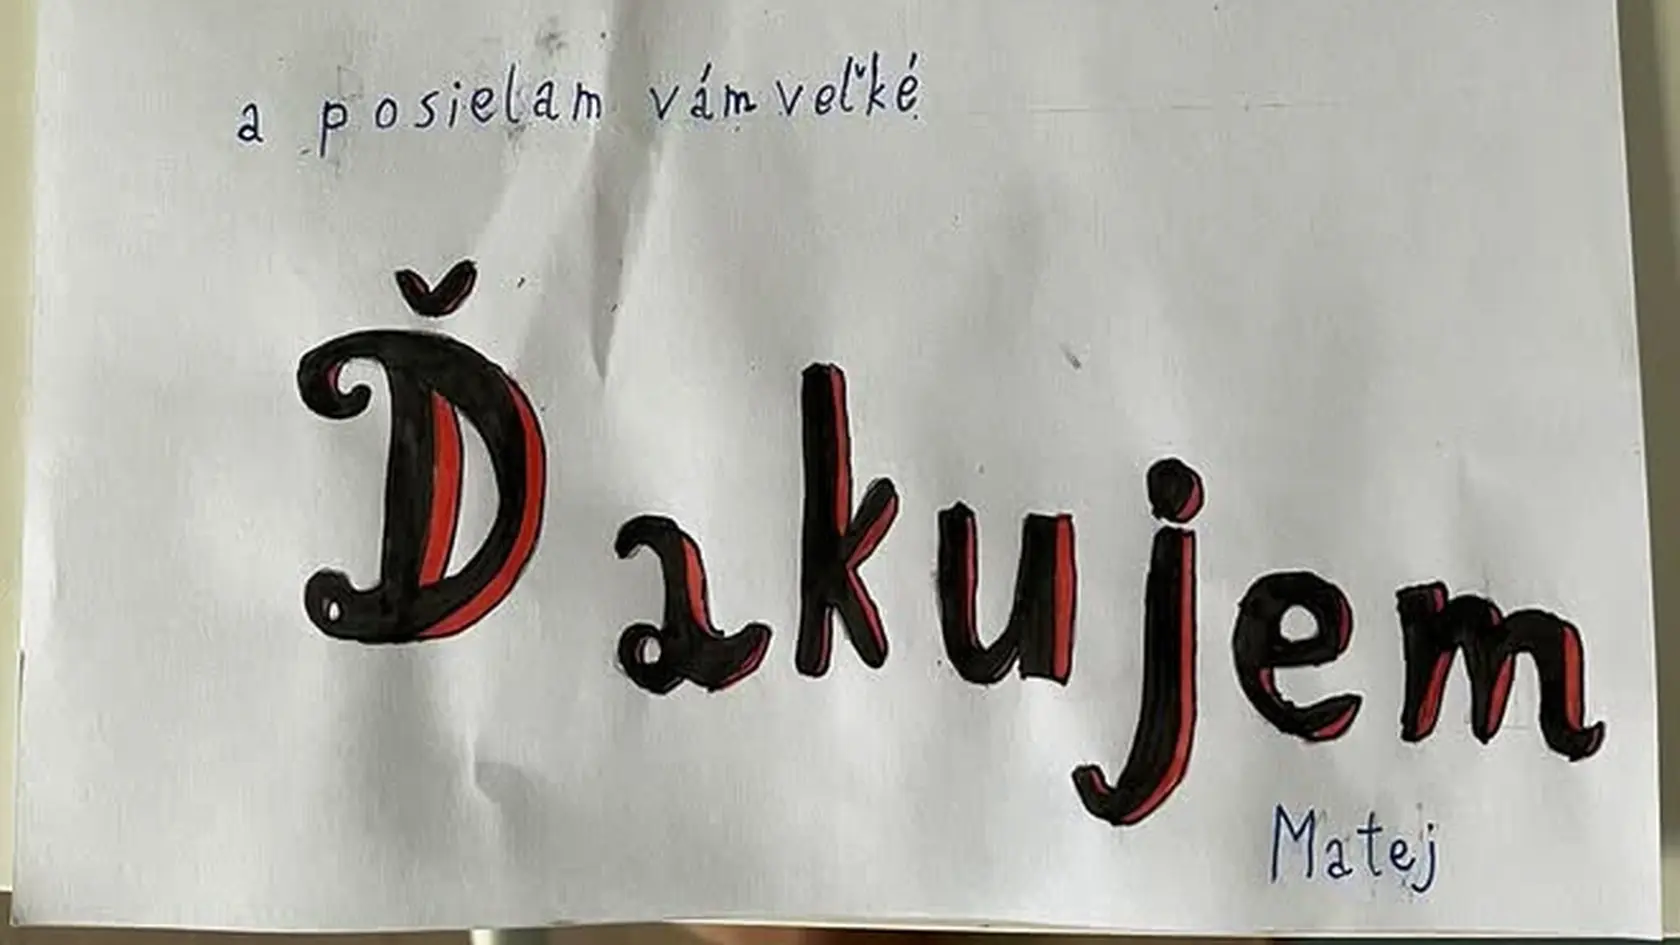 a posielam vám veľké
Ďakujem
Matej